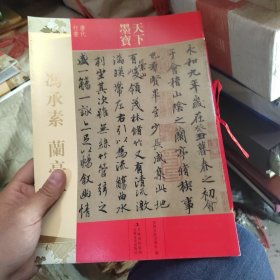 天下
墨寶
唐代
行書
馮承素 蘭亭
永和九年歲在癸丑暮春之初會
于會稽山陰之蘭亭脩禊事
也群賢畢至少長咸集此地
有崇山峻領茂林脩竹又有清流激
湍暎帶左右引以為流觴曲水
列坐其次雖無絲竹管弦之
盛一觴一詠亦足以暢敘幽情